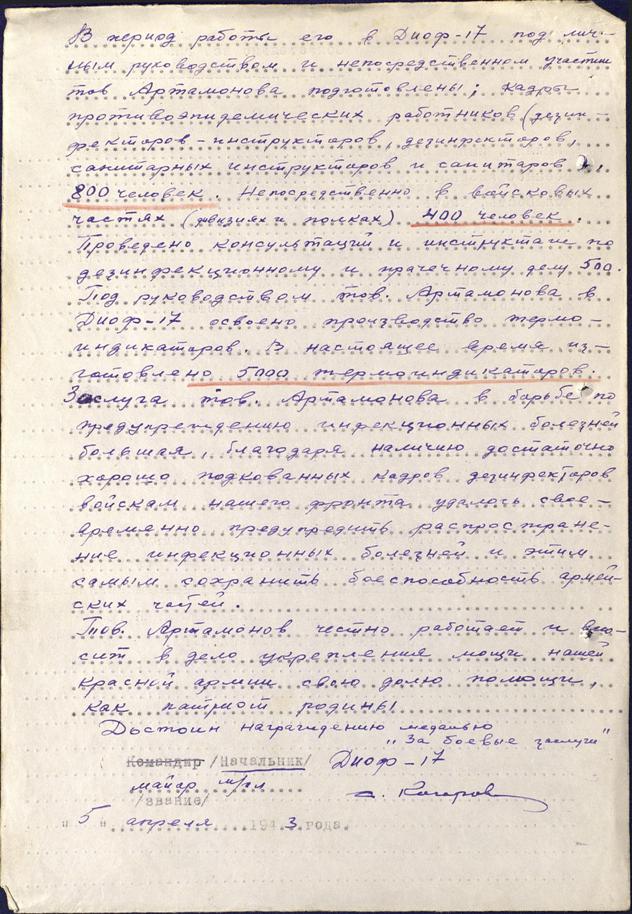 В период работы его в Диоф-17 под лич-
ным руководством и непосредственном участии
тов Артамонова подготовлены; кадры
противоэпидемических работников (дезин-
фекторов-инструкторов, дезинфекторов,
санитарных инструкторов и санитаров
800 человек Непосредственно в войсковых
частях (дивизиях и полках) 400 человек.
Проведено консультаций и инструктаж по
дезинфекционному и прачечному делу 500.
Под руководством тов. Артамонова в
Диоф-17 освоено производство термо-
индикаторов. В настоящее время из-
готовлено 5000 термоиндикаторов.
Заслуга тов. Артамонова в борьбе по
предупреждению инфекционных болезней
большая, благодаря наличию достаточно
хорошо подкованных кадров дезинфекторов
войскам нашего фронта удалось свое-
временно предупредить распростране-
ние инфекционных болезней и этим
самым сохранить боеспособность армей-
ских частей.
Тов. Артамонов честно работает и вно-
сит в дело укрепления мощи нашей
красной армии свою долю помощи,
как патриот родины
Достоин награждению медалью
"За боевые заслуги"
Командир /Начальник/ Диоф-17
майор м/сл
/звание/
"5 апреля 1943 года.